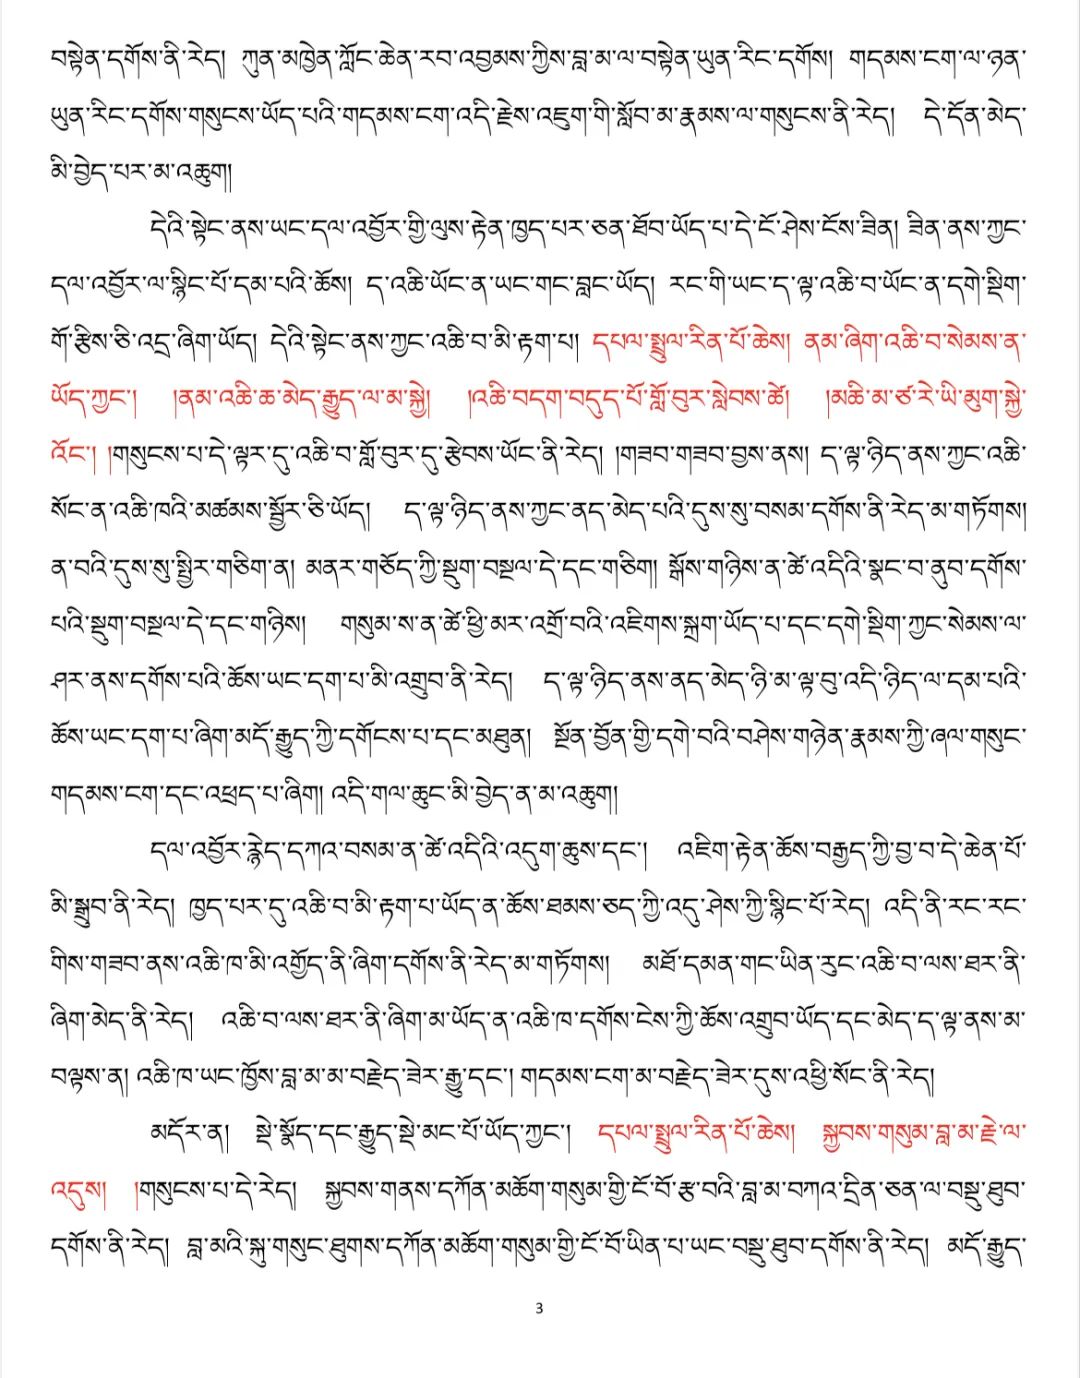 བསྟེན་དགོས་ནི་རེད། ཀུན་མཁྱེན་ཀློང་ཆེན་རབ་འབྱམས་ཀྱིས་བླ་མ་ལ་བསྟེན་ཡུན་རིང་དགོས། གདམས་ངག་ལ་ཉན་
ཡུན་རིང་དགོས་གསུངས་ཡོད་པའི་གདམས་ངག་འདི་རྗེས་འཇུག་གི་སློབ་མ་རྣམས་ལ་གསུངས་ནི་རེད། དེ་དོན་མེད་
མི་བྱེད་པར་མ་འཆུག།
དེའི་སྟེང་ནས་ཡང་དལ་འབྱོར་གྱི་ལུས་རྟེན་ཁྱད་པར་ཅན་ཐོབ་ཡོད་པ་དེ་ངོ་ཤེས་ངོས་ཟིན། ཟིན་ནས་ཀྱང་
དལ་འབྱོར་ལ་སྙིང་པོ་དམ་པའི་ཆོས། ད་འཆི་ཡོང་ན་ཡང་གང་བླང་ཡོད། རང་གི་ཡང་ད་ལྟ་འཆི་བ་ཡོང་ན་དགེ་སྡིག་
གོ་རྩིས་ཅི་འདྲ་ཞིག་ཡོད། དེའི་སྟེང་ནས་ཀྱང་འཆི་བ་མི་རྟག་པ། དཔལ་སྤྲུལ་རིན་པོ་ཆེས། ནམ་ཞིག་འཆི་བ་སེམས་ན་
ཡོད་ཀྱང་། །ནམ་འཆི་ཆ་མེད་རྒྱུད་ལ་མ་སྐྱེ། །འཆི་བདག་བདུད་པོ་གློ་བུར་སླེབས་ཚེ། །མཆི་མ་ཙ་རེ་ཡི་མུག་སྐྱེ་
འོང་། །གསུངས་པ་དེ་ལྟར་དུ་འཆི་བ་གློ་བུར་དུ་རྩེབས་ཡོང་ནི་རེད། །གཟབ་གཟབ་བྱས་ནས། ད་ལྟ་ཉིད་ནས་ཀྱང་འཆི་
སོང་ན་འཆི་ཁའི་མཚམས་སྦྱོར་ཅི་ཡོད། ད་ལྟ་ཉིད་ནས་ཀྱང་ནད་མེད་པའི་དུས་སུ་བསམ་དགོས་ནི་རེད་མ་གཏོགས།
ན་བའི་དུས་སུ་སྤྱིར་གཅིག་ན། མནར་གཅོད་ཀྱི་སྡུག་བསྔལ་དེ་དང་གཅིག། སྒོས་གཉིས་ན་ཚེ་འདིའི་སྣང་བ་ནུབ་དགོས་
པའི་སྡུག་བསྔལ་དེ་དང་གཉིས། གསུམ་ས་ན་ཚེ་ཕྱི་མར་འགྲོ་བའི་འཇིགས་སྐྲག་ཡོད་པ་དང་དགེ་སྡིག་ཀྱང་སེམས་ལ་
ཤར་ནས་དགོས་པའི་ཆོས་ཡང་དག་པ་མི་འགྲུབ་ནི་རེད། ད་ལྟ་ཉིད་ནས་ནད་མེད་ཉི་མ་ལྟ་བུ་འདི་ཉིད་ལ་དམ་པའི་
ཆོས་ཡང་དག་པ་ཞིག་མདོ་རྒྱུད་ཀྱི་དགོངས་པ་དང་མཐུན། སྔོན་བྱོན་གྱི་དགེ་བའི་བཤེས་གཉེན་རྣམས་ཀྱི་ཞལ་གསུང་
གདམས་ངག་དང་འཕྲད་པ་ཞིག། འདི་གལ་ཆུང་མི་བྱེད་ན་མ་འཆུག།
དལ་འབྱོར་རྙེད་དཀའ་བསམ་ན་ཚེ་འདིའི་འདུག་ཆུས་དང་། འཇིག་རྟེན་ཆོས་བརྒྱད་ཀྱི་བྱ་བ་དེ་ཆེན་པོ་
མི་སྒྲུབ་ནི་རེད། ཁྱད་པར་དུ་འཆི་བ་མི་རྟག་པ་ཡོད་ན་ཆོས་ཐམས་ཅད་ཀྱི་འདུ་ཤེས་ཀྱི་སྙིང་པོ་རེད། འདི་ནི་རང་རང་
གིས་གཟབ་ནས་འཆི་ཁ་མི་འགྱོད་ནི་ཞིག་དགོས་ནི་རེད་མ་གཏོགས། མཐོ་དམན་གང་ཡིན་རུང་འཆི་བ་ལས་ཐར་ནི་
ཞིག་མེད་ནི་རེད། འཆི་བ་ལས་ཐར་ནི་ཞིག་མ་ཡོད་ན་འཆི་ཁ་དགོས་ངེས་ཀྱི་ཆོས་འགྲུབ་ཡོད་དང་མེད་ད་ལྟ་ནས་མ་
བལྟས་ན། འཆི་ཁ་ཡང་ཁྱོས་བླ་མ་མ་བརྗེད་ཟེར་རྒྱུ་དང་། གདམས་ངག་མ་བརྗེད་ཟེར་དུས་འཕྱི་སོང་ནི་རེད།
མདོར་ན། སྡེ་སྣོད་དང་རྒྱུད་སྡེ་མང་པོ་ཡོད་ཀྱང་། དཔལ་སྤྲུལ་རིན་པོ་ཆེས། སྐྱབས་གསུམ་བླ་མ་རྗེ་ལ་
འདུས། །གསུངས་པ་དེ་རེད། སྐྱབས་གནས་དཀོན་མཆོག་གསུམ་གྱི་ངོ་བོ་རྩ་བའི་བླ་མ་བཀའ་དྲིན་ཅན་ལ་བསྡུ་ཐུབ་
དགོས་ནི་རེད། བླ་མའི་སྐུ་གསུང་ཐུགས་དཀོན་མཆོག་གསུམ་གྱི་ངོ་བོ་ཡིན་པ་ཡང་བསྡུ་ཐུབ་དགོས་ནི་རེད། མདོ་རྒྱུད་
3